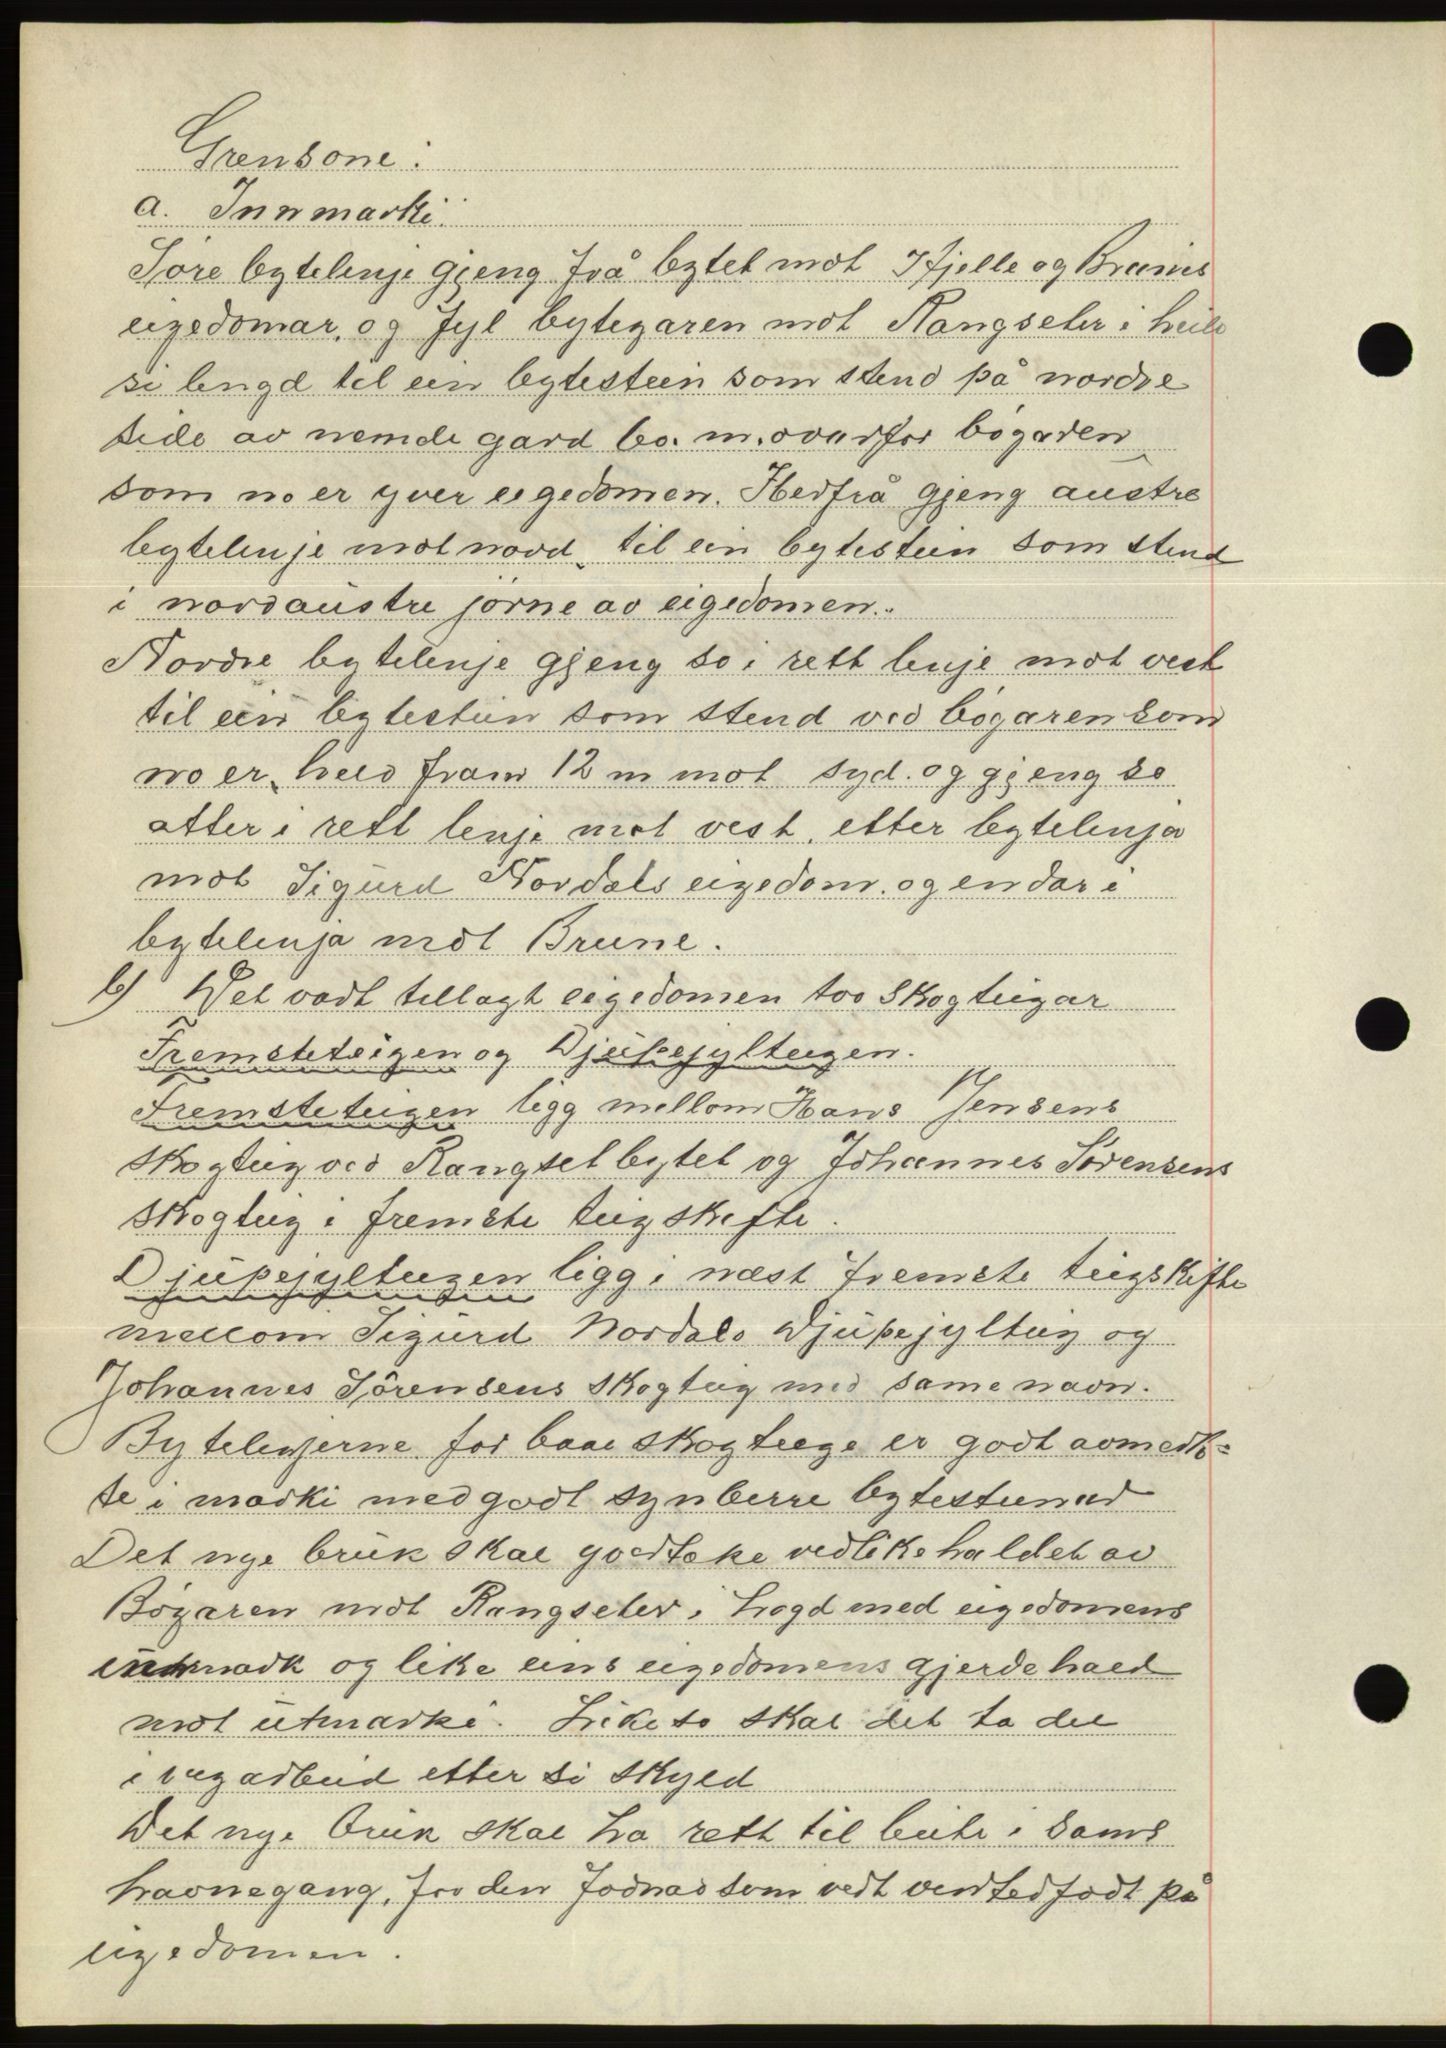 Grensone:
a. Innmarki:
Søre bytelinje gjeng frå bytet mot Ifjelle og Brunes
eigedomar, og fyl bytegaren mot Rangseter i heile
si lengd til ein bytestein som stend på nordre
side av nemde gard 60. m. ovanfor bøgaren
som no er yver eigedomen. Herfrå gjeng austre
bytelinje mot nord, til ein bytestein som stend
i nordaustre jørne av eigedomen.
Nordre bytelinje gjeng so i rett linje mot vest
til ein bytestein som stend ved bøgaren som
no er, held fram 12 m mot syd. og gjeng so
atter i rett linje mot vest, etter bytelinja
mot Sigurd Nordals eigedom. og endar i
bytelinja mot Brune.
b) Det vart tillagt eigedomen tvo skogteigar
Fremsteteigen og Djupejylteigen.
Fremsteteigen ligg mellom Hans Jensens
skogteig ved Rangsetbytet og Johannes Sørensens
skogteig i fremste teigskifte.
Djupejylteigen ligg i næst fremste teigskifte
mellom Sigurd Nordals Djupejylteig og
Johannes Sørensens skogteig med same navn.
Bytelinjerne for baae skogteige er godt avmerk=
te i marki med godt synberre bytesteinar
Det nye bruk skal godtake vedlikehaldet av
Bøgaren mot Rangseter i lægd med eigedomens
innmark og like eins eigedomens gjerdehald
mot utmarki. Likeso skal det ta del
i vegarbeid etter si skyld
Det nye bruk skal ha rett til beite i sams
havnegang, for den som vert vinterfødt på
eigedomen.